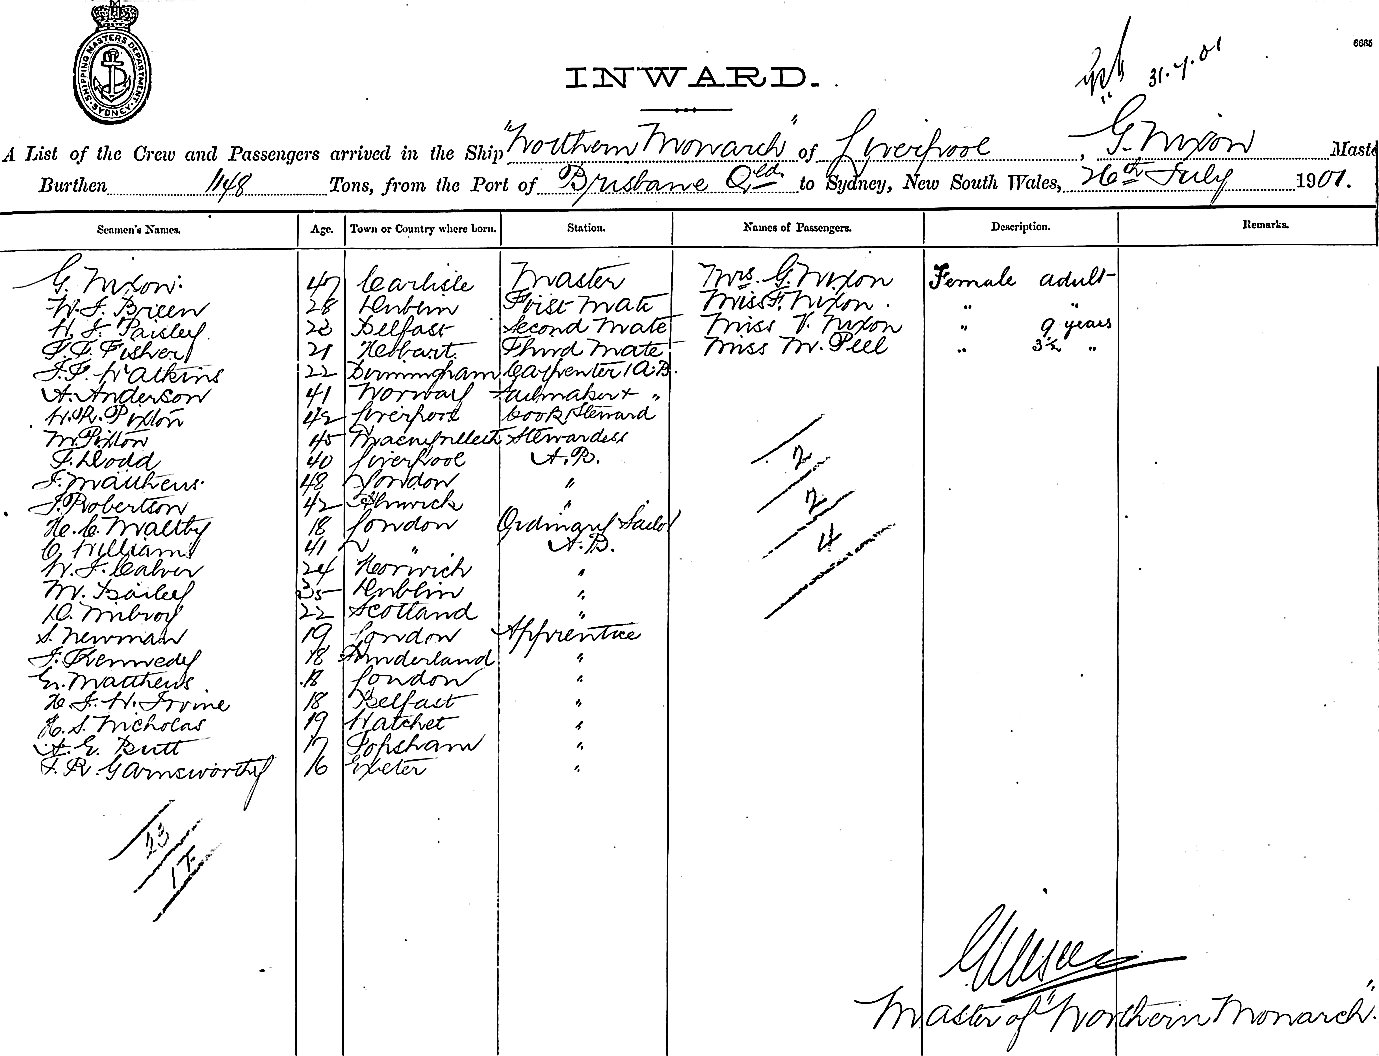 SHIPPING MASTERS DEPARTMENT SYDNEY
6685
INWARD.
31.7.01
A List of the Crew and Passengers arrived in the Ship "Northern Monarch" of Liverpool, G. Nixon Maste
Burthen 1148 Tons, from the Port of Brisbane Qld. to Sydney, New South Wales, 26th July 1901.
Seamen's Names. Age. Town or Country where born. Station. Names of Passengers. Description. Remarks.
G. Nixon. 47 Carlisle Master Mrs. G. Nixon Female adult
W. J. Breen 28 Dublin First Mate Miss F. Nixon. " "
H. J. Paisley 23 Belfast Second Mate Miss V. Nixon " 9 years
Fisher 21 Hobart. Third Mate Miss M. Peel " 3½ "
Watkins 22 Birmingham Carpenter & A.B.
A. Anderson 41 Norway Sailmaker & "
W. R. Pixton 42 Liverpool Cook & Steward
M. Pixton 45 Stewardess
Dodd 40 Liverpool A.B.
J. Matthews. 48 London "
J. Robertson 42 "
H. C. Maltby 18 London Ordinary Sailor
C. Williams 41 " A.B.
W. J. Calver 24 Norwich "
M. Bailey 35 Dublin "
D. Milroy 22 Scotland "
S. Newman 19 London Apprentice
J. Kennedy 18 Sunderland "
G. Matthews. 18 London "
H. J. W. Irvine 18 Belfast "
H. S. Nicholas 19 Watchet "
A. E. Butt 17 Topsham "
J. R. Garnsworthy 16 Exeter "
2
2
4
23
1 F.
G Nixon
Master of "Northern Monarch".